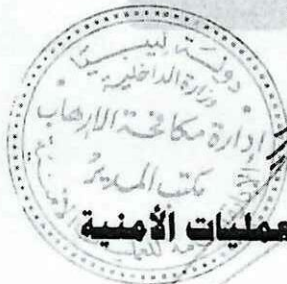 دولة ليبيا
وزارة الداخلية
إدارة مكافحة الإرهاب
مكتب المدير
عمليات الأمنية